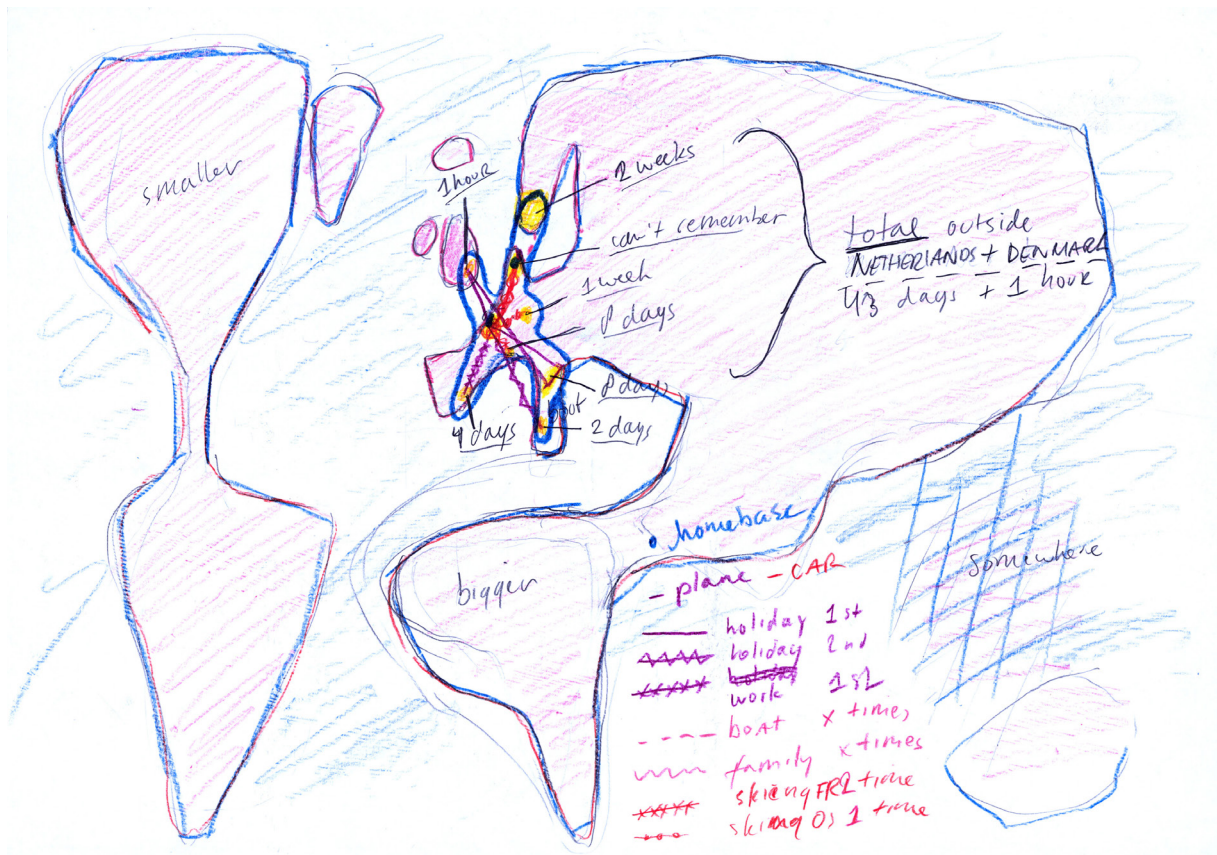 smaller
1 hour
2 weeks
can't remember
1 week
8 days
8 days
boot
4 days
2 days
total outside
NETHERLANDS + DENMARK
43 days + 1 hour
homebase
bigger
somewhere
- plane - CAR
holiday 1st
holiday 2nd
holiday
work 1st
boat x times
family x times
skiing FR 1 time
skiing OS 1 time